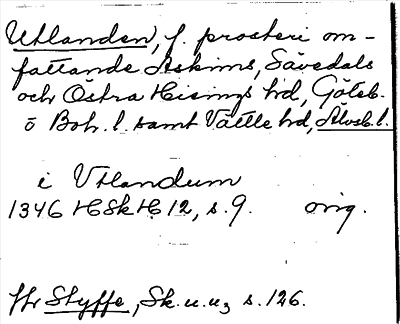 Utlanden, f. prosteri om-
fattande Askims, Sävedals
och Östra Hisings hd, Göteb.
o Boh. l. samt Vättle hd, Älvsb. l.
i Vtlandum
1346 HSkH 12, s. 9. orig.
Hr Styffe, Sk. u. u, s. 126.